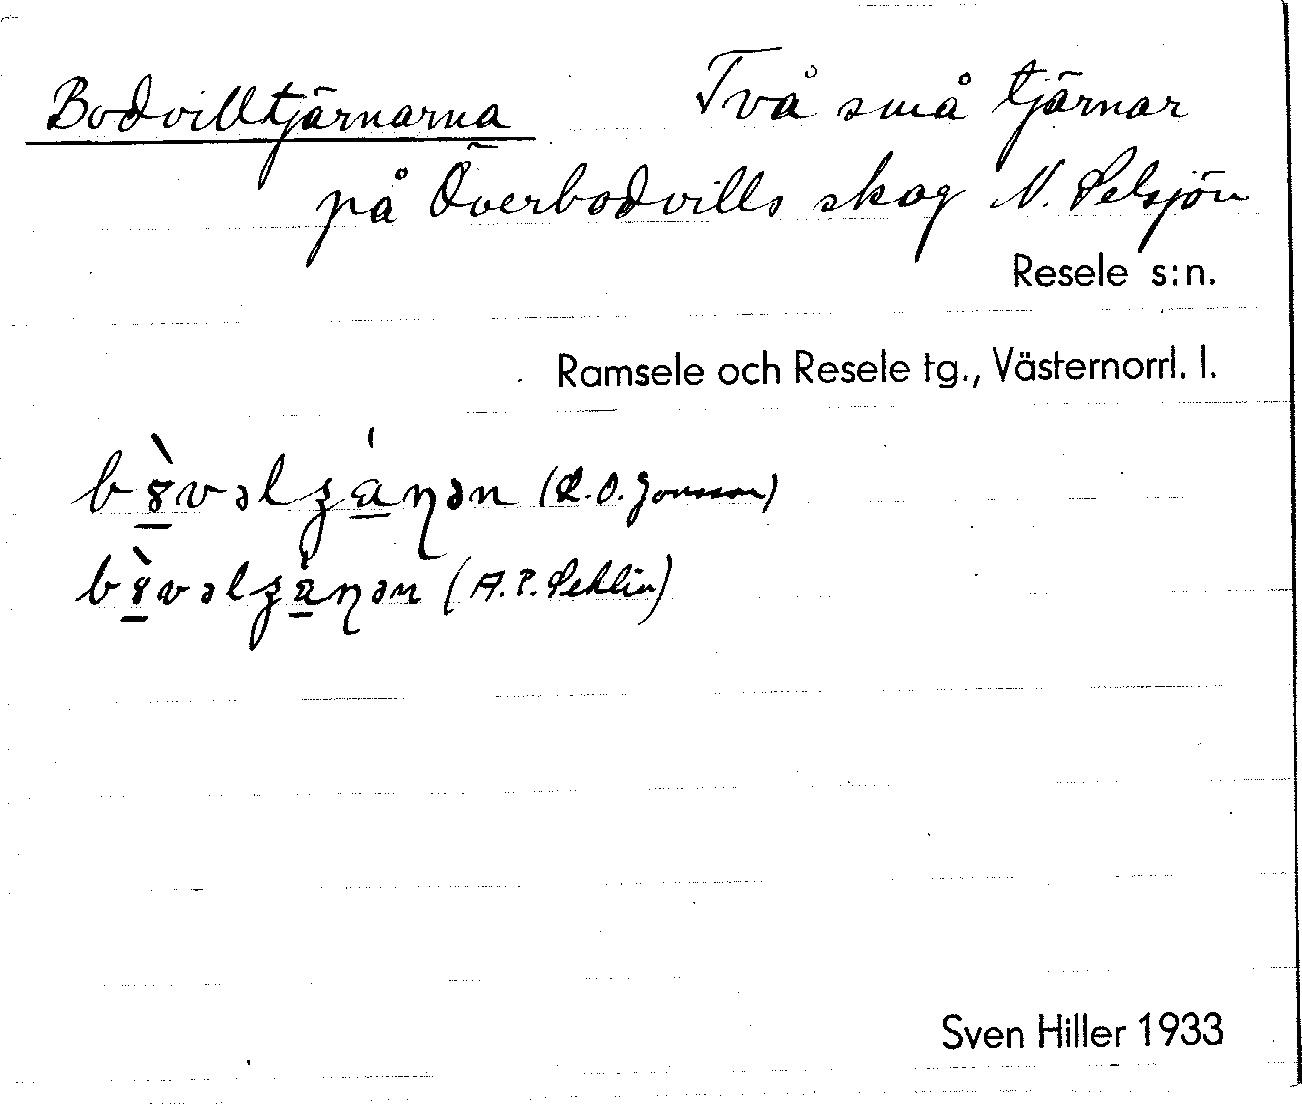 Bodvilltjärnarna Två små tjärnar
på Överbodvills skog N. Selsjön
Resele s:n.
Ramsele och Resele tg., Västernorrl. l.
(R.O. Jonsson)
(A.P. Sehlin)
Sven Hiller 1933